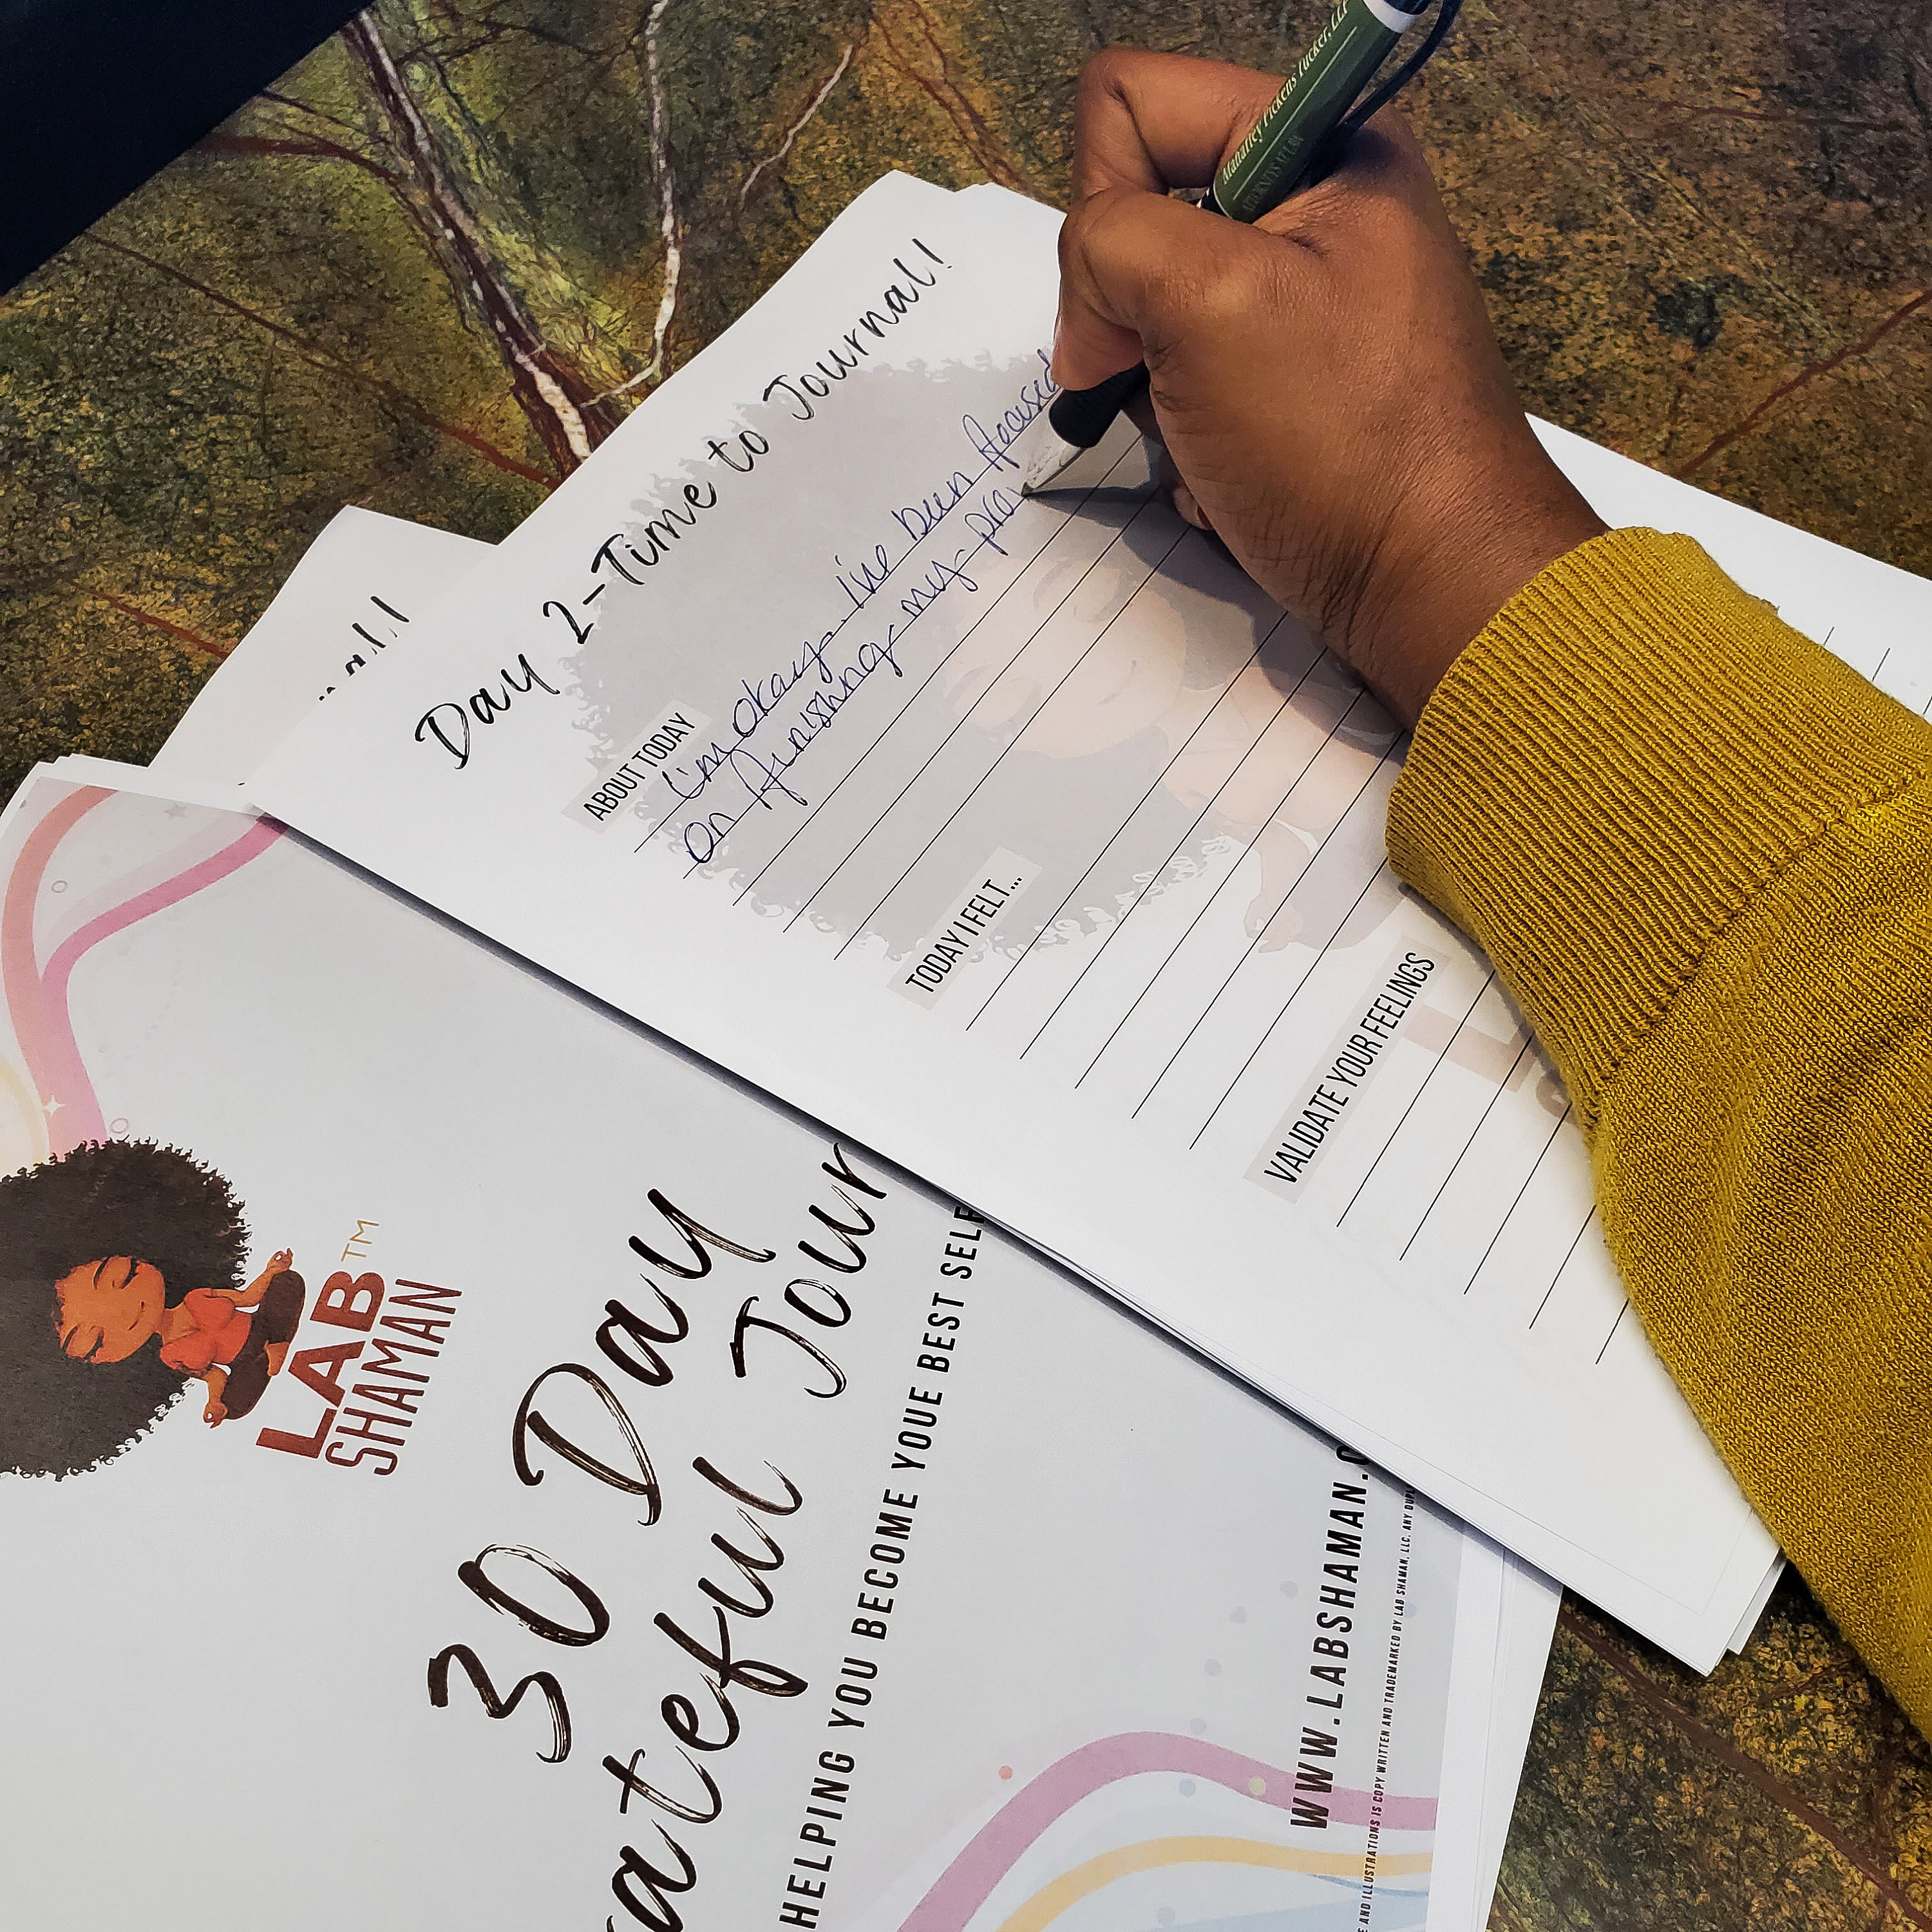 Manatley Pickens Tucker, LLP
ATTORNEYS AT LAW
Day 2-Time to Journal!
ABOUT TODAY
I'm okay. I've been focused
on finishing my pro
TODAY I FELT...
VALIDATE YOUR FEELINGS
LAB™
SHAMAN
30 Day
ateful Jour
HELPING YOU BECOME YOUE BEST SELF
WWW.LABSHAMAN.
AND ILLUSTRATIONS IS COPY WRITTEN AND TRADEMARKED BY LAB SHAMAN, LLC. ANY DUPL